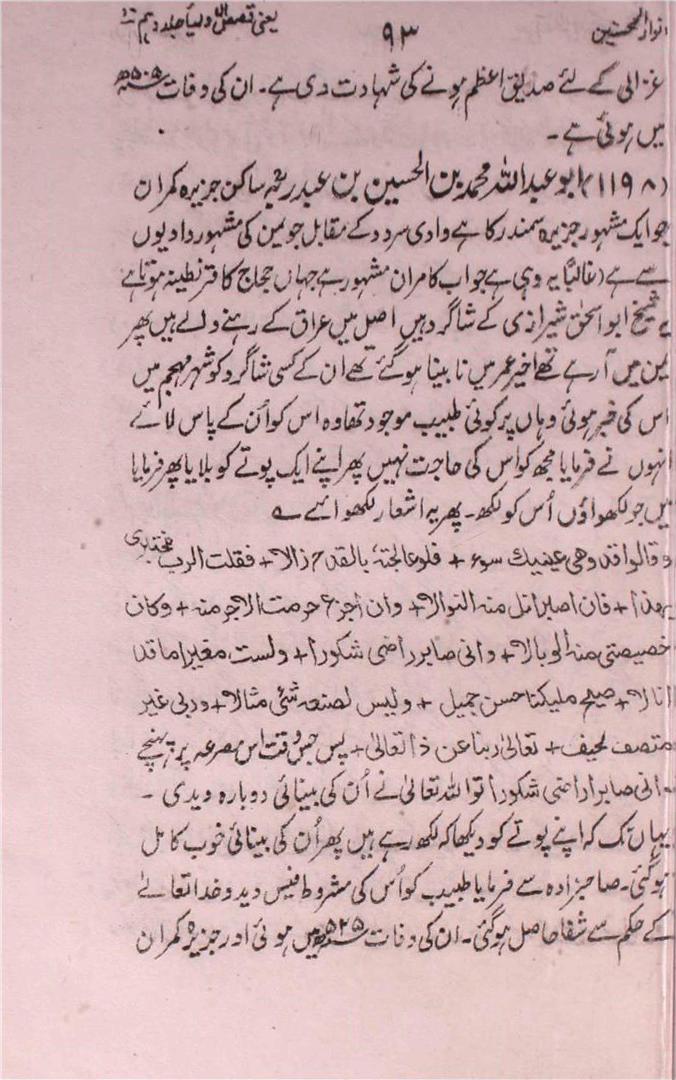 انوار المحسنین ۹۳ یعنی قصص الاولیا جلد دہم
غزالی کے لئے صدیق اعظم ہونے کی شہادت دی ہے۔ ان کی وفات ۵۰۵ھ
میں ہوئی ہے۔
(۱۱۹۸) ابو عبداللہ محمد بن الحسین بن عبدربہ ساکن جزیرہ کمران
جو ایک مشہور جزیرہ سمندر کا ہے وادی سردد کے مقابل جو یمن کی مشہور وادیوں
سے ہے (غالبًا یہ وہی ہے جو اب کامران مشہور ہے جہاں حجاج کا قرنطینہ ہوتا ہے
یہ شیخ ابو اسحٰق شیرازی کے شاگرد ہیں اصل میں عراق کے رہنے والے ہیں پھر
یمن میں آرہے تھے اخیر عمر میں نابینا ہو گئے تھے ان کے کسی شاگرد کو شہر مہجم میں
اس کی خبر ہوئی وہاں پر کوئی طبیب موجود تھا وہ اس کو اُن کے پاس لائے
انہوں نے فرمایا مجھ کو اس کی حاجت نہیں پھر اپنے ایک پوتے کو بلایا پھر فرمایا
میں جو لکھواؤں اُس کو لکھ۔ پھر یہ اشعار لکھوائے ے
وقالوا قد وھی عینیک سوء + فلو عالجتہٗ بالقدح زالا + فقلت الرب مختبری
بھذا + فان اصبر انل منہ النوالا + وان اجزع حرمت الاجر منہ + وکان
خصیصتی منہ الوبالا + وانی صابر راضی شکورا + ولست مغیرا ما قد
انالا + صیح ملیکنا حسن جمیل + ولیس لصنعہ شئی مثالا + وربی غیر
متصف بحیف + تعالیٰ ربنا عن ذا تعالیٰ + پس جس وقت اس مصرعہ پر پہنچے
وانی صابرا راضی شکورا تو اللہ تعالیٰ نے اُن کی بینائی دوبارہ دیدی ۔
یہاں تک کہ اپنے پوتے کو دیکھا کہ لکھ رہے ہیں پھر اُن کی بینائی خوب کامل
ہو گئی۔ صاحبزادہ سے فرمایا طبیب کو اُس کی مشروط فیس دیدو خدا تعالےٰ
کے حکم سے شفا حاصل ہو گئی۔ ان کی وفات ۵۲۵ھ میں ہوئی اور جزیرہ کمران